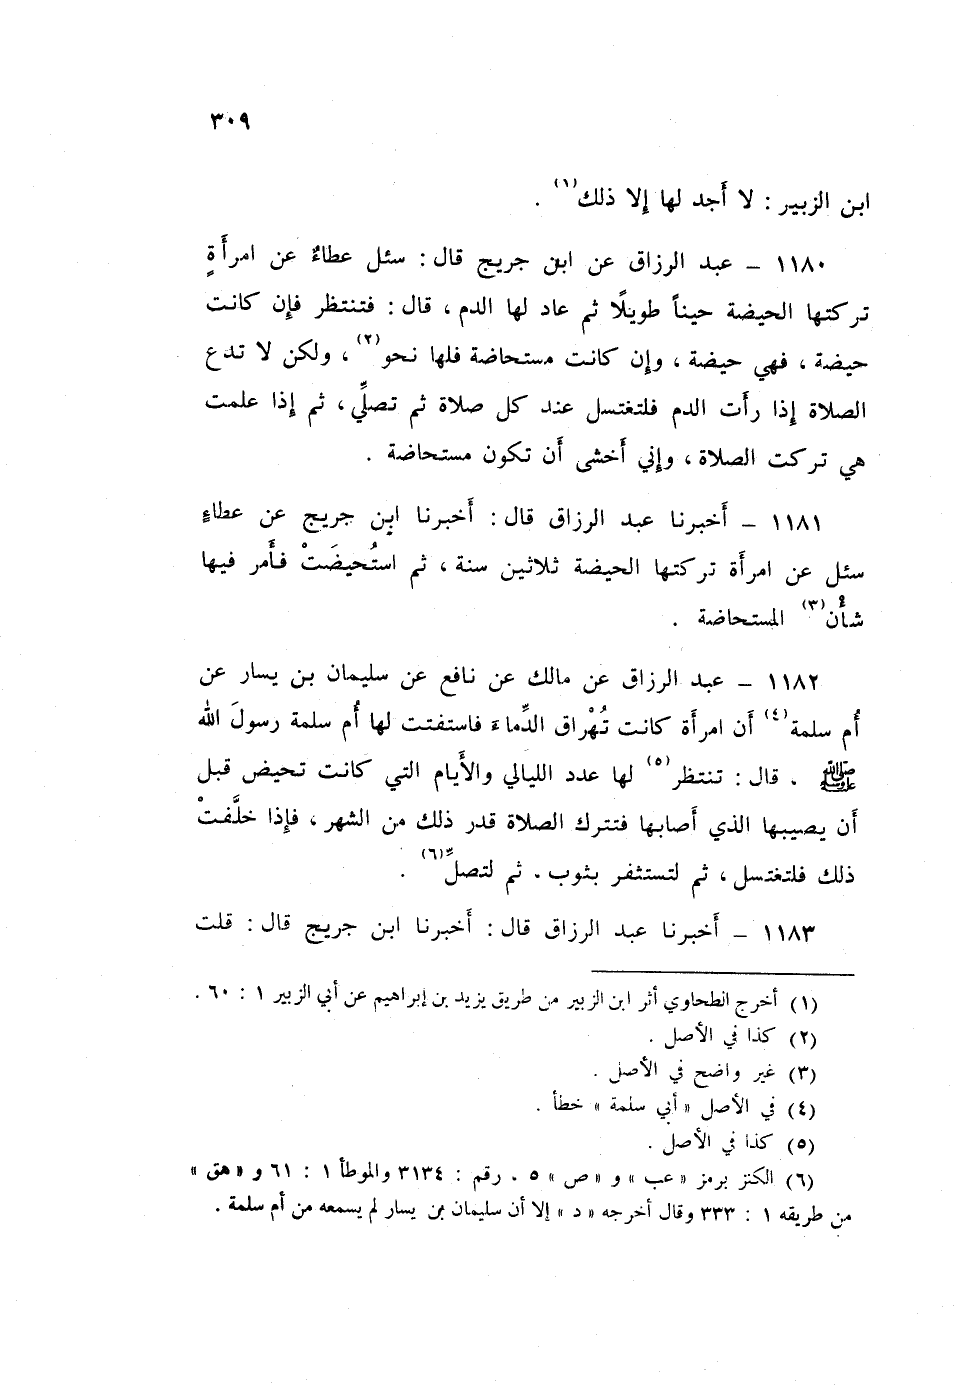 ٣٠٩
ابن الزبير : لا أَجد لها إِلا ذلك(١) .
١١٨٠ – عبد الرزاق عن ابن جريج قال : سئل عطاءٌ عن امرأَةٍ
تركتها الحيضة حيناً طويلًا ثم عاد لها الدم ، قال : فتنتظر فإن كانت
حيضة ، فهي حيضة ، وإن كانت مستحاضة فلها نحو(٢) ، ولكن لا تدع
الصلاة إِذا رأَت الدم فلتغتسل عند كل صلاة ثم تصلِّي ، ثم إِذا علمت
هي تركت الصلاة ، وإني أَخشى أَن تكون مستحاضة .
١١٨١ – أَخبرنا عبد الرزاق قال : أَخبرنا ابن جريج عن عطاءٍ
سئل عن امرأَة تركتها الحيضة ثلاثين سنة ، ثم استُحيضَتْ فأَمر فيها
شأْن(٣) المستحاضة .
١١٨٢ – عبد الرزاق عن مالك عن نافع عن سليمان بن يسار عن
أُم سلمة(٤) أَن امرأَة كانت تُهْراق الدِّماءَ فاستفتت لها أُم سلمة رسولَ الله
ﷺ . قال : تنتظر(٥) لها عدد الليالي والأَيام التي كانت تحيض قبل
أَن يصيبها الذي أَصابها فتترك الصلاة قدر ذلك من الشهر ، فإِذا خلَّفتْ
ذلك فلتغتسل ، ثم لتستثفر بثوب . ثم لتصلِّ(٦) .
١١٨٣ – أَخبرنا عبد الرزاق قال : أَخبرنا ابن جريج قال : قلت
(١) أخرج الطحاوي أثر ابن الزبير من طريق يزيد بن إبراهيم عن أبي الزبير ١ : ٦٠ .
(٢) كذا في الأصل .
(٣) غير واضح في الأصل .
(٤) في الأصل « أبي سلمة » خطأ .
(٥) كذا في الأصل .
(٦) الكنز برمز « عب » و « ص » ٥ . رقم : ٣١٣٤ والموطأ ١ : ٦١ و « هق »
من طريقه ١ : ٣٣٣ وقال أخرجه « د » إلا أن سليمان بن يسار لم يسمعه من أم سلمة .